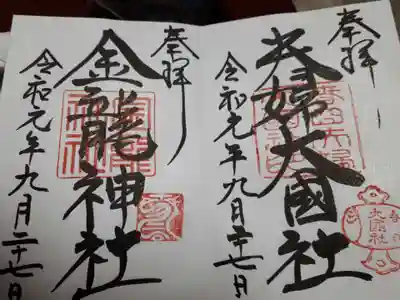 奉拝
夫婦大國社
令和元年九月二十七日
大國社
奉拝
金龍神社
令和元年九月二十七日